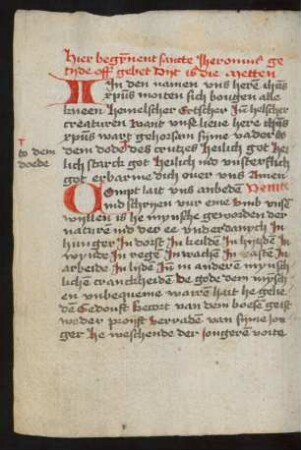 Hier begynnent sancte Iheronimus ge
tyde off gebet Dyt is die Metten
In den namen uns heren ihesus
xpus moten sich bougen alle
kneen hemelscher Ertscher In helscher
creaturen Want unse lieve here ihesus
xpus wart gehorsam syme vader
to dem dode
dem dode des crutzes Heilich got hei
lich starck got Heilich und unsterflich
got erbarme dich over uns Amen
Compt lait uns anbeden Venite
und schryen vur eme umb unse
wyllen is he mynsche geworden der
naturen und der ee underdanych In
hunger In dorst In kelden In hytzen In
wynde In regen In wachen In vasten In
arbeide In lyden In in anderen mynsch
lichen cranckheiden De gode dem mysch
en unbequeme waren hait he gele
den Gedoufft Becort van dem boese geist
weder Verraden van syme Jon
ger he weschende der Jongeren voite